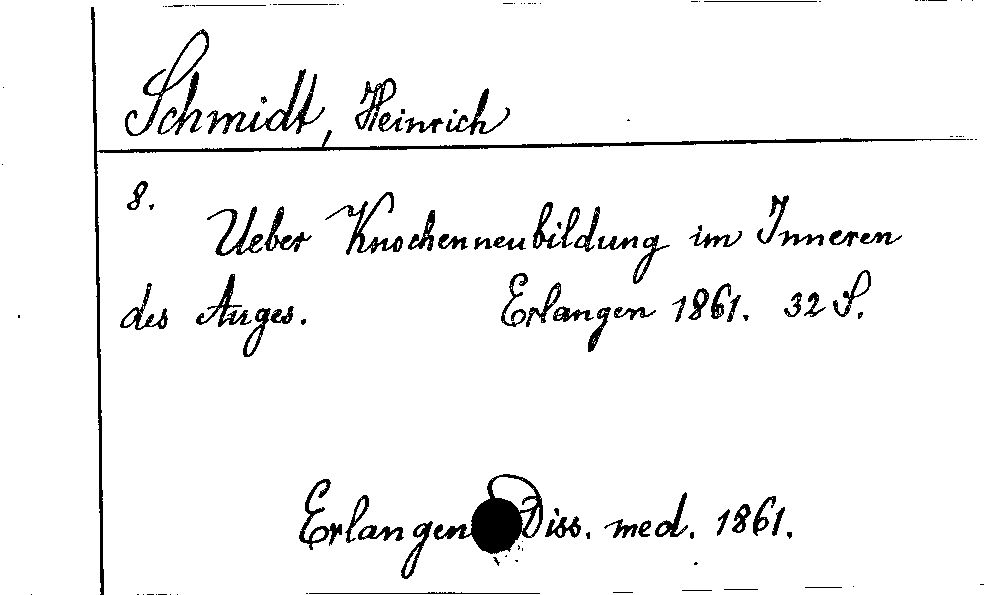 Schmidt, Heinrich
8.
Ueber Knochenneubildung im Inneren
des Auges. Erlangen 1861. 32 S.
Erlangen Diss. med. 1861.